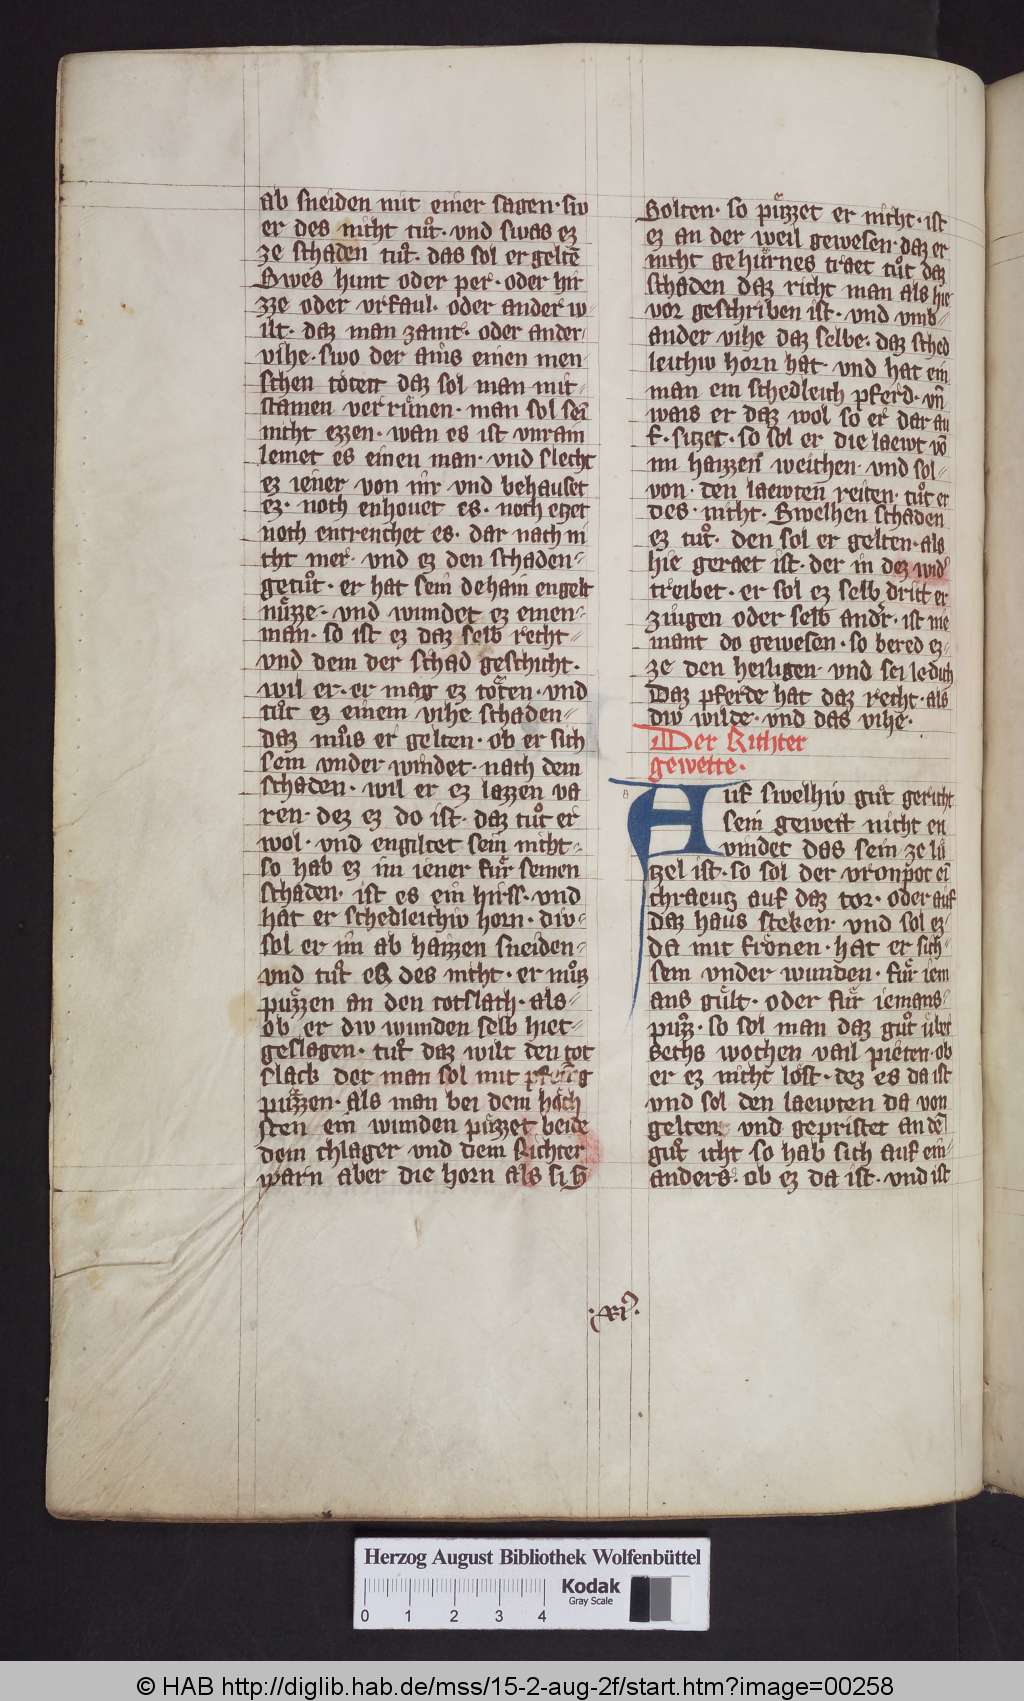 ab sneiden mit einer sagen· siv
er des nicht tuͦt· vnd swas ez
ze schaden tuͦt· das sol er geltē
Swes hunt oder per· oder hir
zze oder vrfaul· oder ander w-
ilt· daz man zamt· oder ander-
vihe· swo der ains einen men
schen tötett daz sol man mit-
stainen verrünen· man sol sei
nicht ezzen· wan es ist vnrain
lemet es einen man· vnd slecht
ez iener von im vnd behauset
ez· noch enhouet es· noch etzet
noch entrenchet es· dar nach ni
cht mer· vnd ez den schaden-
getuͦt· er hat sein dehain engelt
nüzze· vnd wundet ez einen-
man· so ist ez daz selb recht-
vnd dem der schad geschicht·
wil er· er mag ez töten· vnd
tuͦt ez einem vihe schaden-
daz muͦs er gelten· ob er sich
sein vnder windet· nach dem
schaden· wil er ez lazzen va
ren· dez ez do ist· daz tuͦt er
wol· vnd engiltet sein nicht-
so hab ez im iener für seinen
schaden· ist es ein hirss· vnd
hat er schedleichiv horn· div-
sol er im ab haizzen sneiden-
vnd tuͦt es des nicht· er muͦz
püzzen an den totslach· als-
ob er div wunden selb hiet-
geslagen· tuͦt daz wilt den tot
slack der man sol mit pfenīg
püzzen· als man bei dem höch
sten ein wunden püzzet beide
dem chlager vnd dem Richter
warn aber die horn als si h
Solten· so püzzet er nicht· ist
ez an der weil gewesen· daz er
nicht gehürnes traet tuͦt daz
schaden daz richt man als hie
vor geschriben ist· vnd vmb-
ander vihe daz selbe· daz sched
leichiv horn hat· vnd hat ein
man ein schedleich pferd· vn̄
wais er daz wol so er dar au
f· sitzet· so sol er die laewt vō
im haizzen weichen· vnd sol-
von· den laewten reiten· tuͦt er
des· nicht· Swelhen schaden
ez tuͦt· den sol er gelten· als
hie geraet ist· der in dez wid'
treibet· er sol ez selb dritt er
ziugen oder selb andr· ist nie
mant do gewesen· so bered ez-
ze den heiligen· vnd sei ledich
Daz pferde hat daz recht· als
div wilde· vnd das vihe·
Der Richter
gewette·
Auf swelhiv guͦt gericht
sein gewett nicht en
vindet das sein ze lü
tzel ist· so sol der vronpot ei
chraeutz auf daz tor· oder auf
daz haus steken· vnd sol ez-
da mit frönen· hat er sich-
sein vnder wunden· für iem
ans gült· oder für iemans-
puzz· so sol man daz guͦt über
sechs wochen vail pieten· ob
er ez nicht löst· dez es da ist
vnd sol den laewten da von
gelten· vnd gepristet an dē
guͦt icht so hab sich auf ein-
anders· ob ez da ist· vnd ist
·xi·
Herzog August Bibliothek Wolfenbüttel
0 1 2 3 4
Kodak
Gray Scale
© HAB http://diglib.hab.de/mss/15-2-aug-2f/start.htm?image=00258